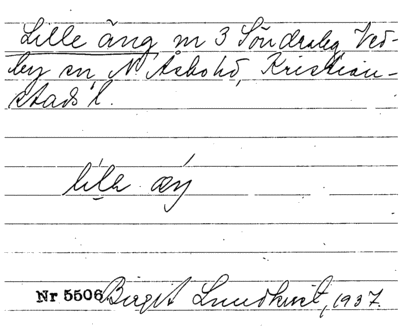 Lille äng m 3 Söndraby, Ved-
by sn, N Åsbo hd, Kristian-
stads l.
lila æŋ
Nr 5506 Birgit Lundkvist, 1937.